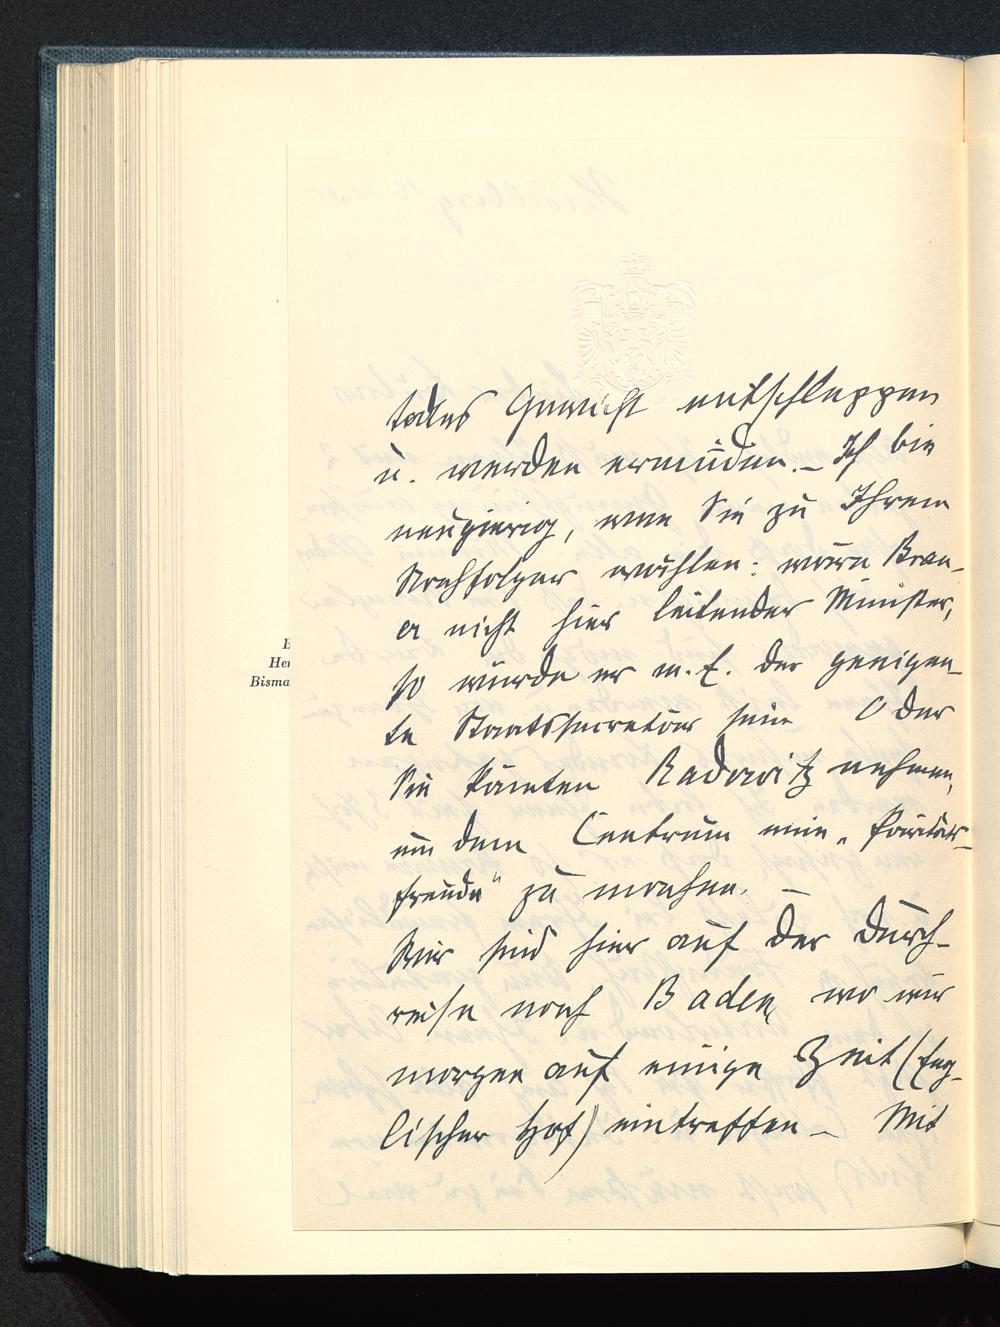 todtes Gewicht entschleppen
u. werden ermüden. – Ich bin
neugierig, wen Sie zu Ihrem
Nachfolger wählen: wäre Brau-
er nicht hier leitender Minister,
so würde er m. E. der geeigne-
te Staatssecretär sein. Oder
Sie könnten Radowitz nehmen,
um dem Centrum eine „Paritäts-
freude“ zu machen. –
Wir sind hier auf der Durch-
reise nach Baden, wo wir
morgen auf einige Zeit (Eng-
lischer Hof) eintreffen – Mit
E
Her
Bisma